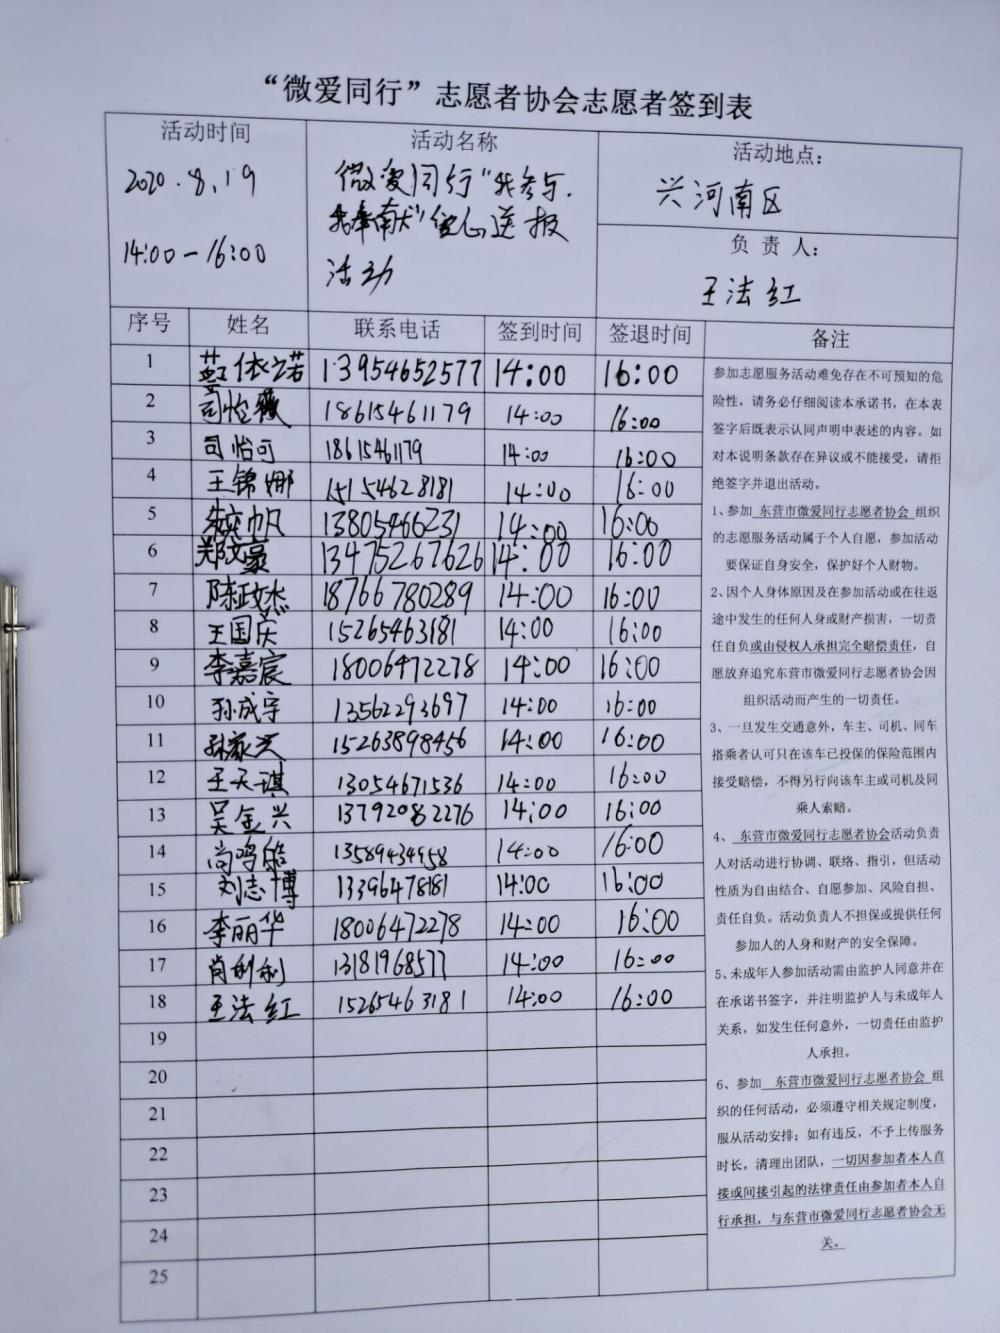 “微爱同行”志愿者协会志愿者签到表
活动时间
2020.8.19
14:00-16:00
活动名称
微爱同行“我参与.
我奉献”爱心送报
活动
活动地点：
兴河南区
负 责 人：
王法红
序号 姓名 联系电话 签到时间 签退时间 备注
1 依若 13954652577 14:00 16:00
2 司怡薇 18615461179 14:00 16:00
3 司怡可 18615461179 14:00 16:00
4 王锦娜 15154628181 14:00 16:00
5 帆 13805466231 14:00 16:00
6 郑文豪 13475267626 14:00 16:00
7 陈政杰 18766780289 14:00 16:00
8 王国庆 15265463181 14:00 16:00
9 李嘉宸 18006472278 14:00 16:00
10 孙成宇 13562293697 14:00 16:00
11 孙家兴 15263898456 14:00 16:00
12 王天琪 13054671536 14:00 16:00
13 吴金兴 13792082276 14:00 16:00
14 尚鸣皓 13589434958 14:00 16:00
15 刘志博 13396478181 14:00 16:00
16 李丽华 18006472278 14:00 16:00
17 肖利利 13181968577 14:00 16:00
18 王法红 15265463181 14:00 16:00
19
20
21
22
23
24
25
参加志愿服务活动难免存在不可预知的危
险性，请务必仔细阅读本承诺书，在本表
签字后既表示认同声明中表述的内容。如
对本说明条款存在异议或不能接受，请拒
绝签字并退出活动。
1、参加 东营市微爱同行志愿者协会 组织
的志愿服务活动属于个人自愿，参加活动
要保证自身安全，保护好个人财物。
2、因个人身体原因及在参加活动或在往返
途中发生的任何人身或财产损害，一切责
任自负或由侵权人承担完全赔偿责任，自
愿放弃追究东营市微爱同行志愿者协会因
组织活动而产生的一切责任。
3、一旦发生交通意外，车主、司机、同车
搭乘者认可只在该车已投保的保险范围内
接受赔偿，不得另行向该车主或司机及同
乘人索赔。
4、 东营市微爱同行志愿者协会活动负责
人对活动进行协调、联络、指引，但活动
性质为自由结合、自愿参加、风险自担、
责任自负。活动负责人不担保或提供任何
参加人的人身和财产的安全保障。
5、未成年人参加活动需由监护人同意并在
在承诺书签字，并注明监护人与未成年人
关系，如发生任何意外，一切责任由监护
人承担。
6、参加 东营市微爱同行志愿者协会 组
织的任何活动，必须遵守相关规定制度，
服从活动安排；如有违反，不予上传服务
时长，清理出团队，一切因参加者本人直
接或间接引起的法律责任由参加者本人自
行承担，与东营市微爱同行志愿者协会无
关。